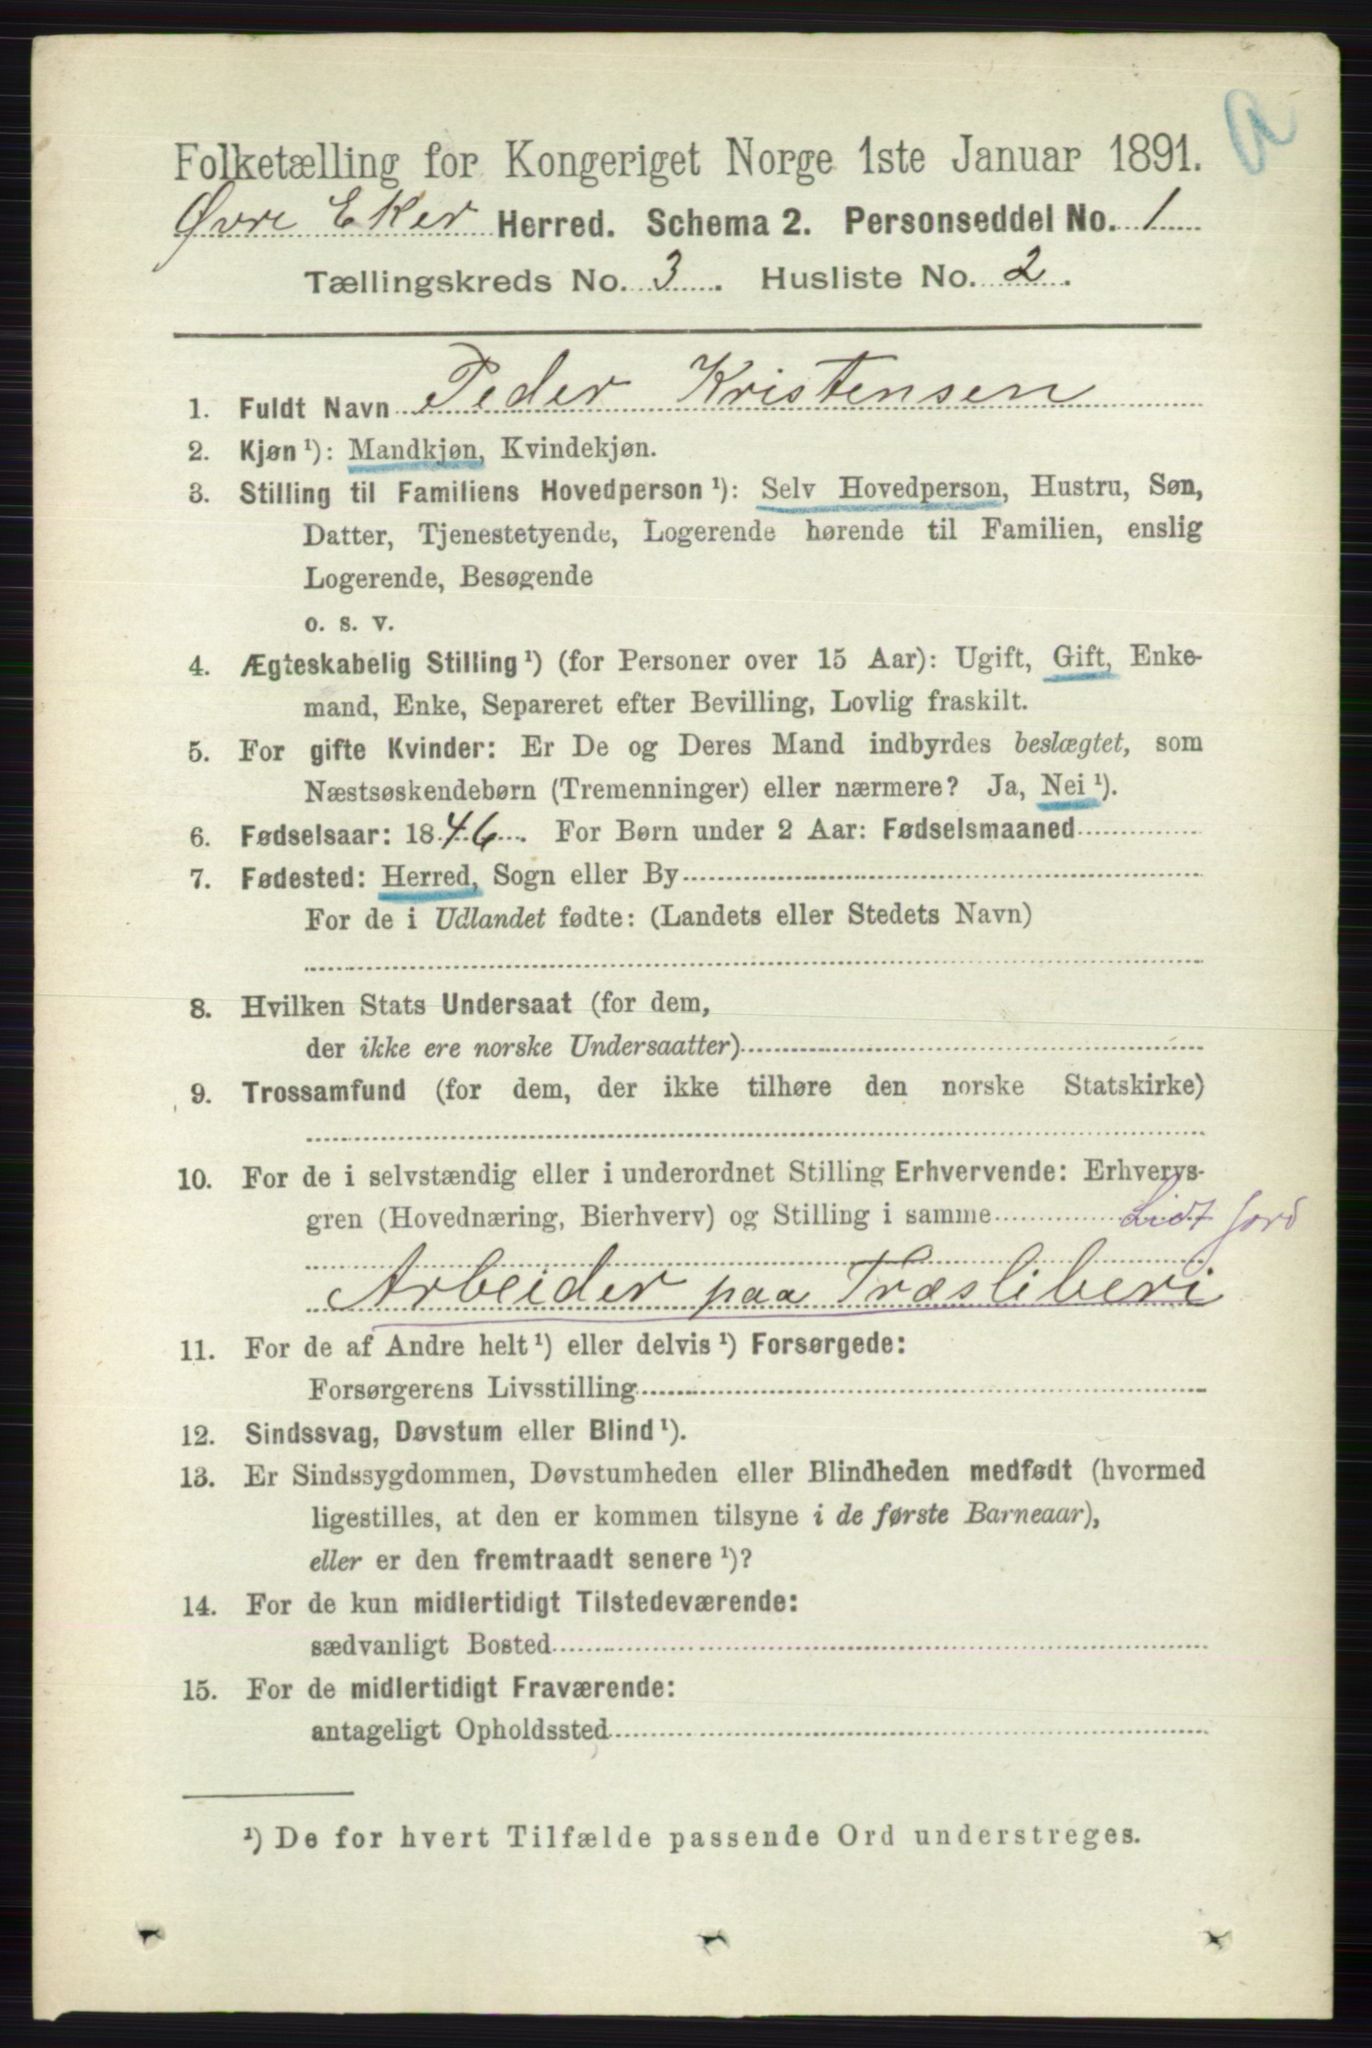 Folketælling for Kongeriget Norge 1ste Januar 1891.
Øvre Eker Herred. Schema 2. Personseddel No. 1
Tællingskreds No. 3. Husliste No. 2.
1. Fuldt Navn Peder Kristensen
2. Kjøn¹): Mandkjøn, Kvindekjøn.
3. Stilling til Familiens Hovedperson¹): Selv Hovedperson, Hustru, Søn,
Datter, Tjenestetyende, Logerende hørende til Familien, enslig
Logerende, Besøgende
o. s. v.
4. Ægteskabelig Stilling¹) (for Personer over 15 Aar): Ugift, Gift, Enke-
mand, Enke, Separeret efter Bevilling, Lovlig fraskilt.
5. For gifte Kvinder: Er De og Deres Mand indbyrdes beslægtet, som
Næstsøskendebørn (Tremenninger) eller nærmere? Ja, Nei¹).
6. Fødselsaar: 1846. For Børn under 2 Aar: Fødselsmaaned
7. Fødested: Herred, Sogn eller By
For de i Udlandet fødte: (Landets eller Stedets Navn)
8. Hvilken Stats Undersaat (for dem,
der ikke ere norske Undersaatter)
9. Trossamfund (for dem, der ikke tilhøre den norske Statskirke)
10. For de i selvstændig eller i underordnet Stilling Erhvervende: Erhvervs-
gren (Hovednæring, Bierhverv) og Stilling i samme Lidt Jord
Arbeider paa Træsliberi
11. For de af Andre helt¹) eller delvis¹) Forsørgede:
Forsørgerens Livsstilling
12. Sindssvag, Døvstum eller Blind¹).
13. Er Sindssygdommen, Døvstumheden eller Blindheden medfødt (hvormed
ligestilles, at den er kommen tilsyne i de første Barneaar),
eller er den fremtraadt senere¹)?
14. For de kun midlertidigt Tilstedeværende:
sædvanligt Bosted
15. For de midlertidigt Fraværende:
antageligt Opholdssted
¹) De for hvert Tilfælde passende Ord understreges.